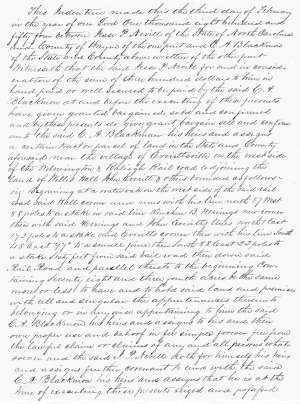 This Indenture made this the third day of February
in the year of our Lord One thousand eight hundred and
fifty four between Jesse P. Nevill of the State of North Carolina
and County of Wayne of the one part and C. A. Blackman
of the State and County above written of the other part
Witnesseth that the said Jesse P. Nevill for and in consid-
eration of the sum of three hundred dollars to him in
hand paid or well secured to be paid by the said C. A.
Blackman at and before the executing of these presents
have given granted bargained sold and confirmed
and by these presents do give grant bargain sell and confirm
unto the said C. A. Blackman his heirs and assigns
a certain tract or parcel of land in the State and County
aforesaid near the village of Everittsville on the west side
of the Wilmington & Raleigh Rail road adjoining the
land of Hall John Everitt & others bounded as follows
viz Beginning at a on the west side of the said rail
road said Hall corner and runs with his line north 87 West
88 poles to a stake on said line corner
then with said and John Everitts line north 3 East
73 poles to a stake said Everitts corner then with his line South
88 East 77 to a small pine then South 88 East 23 poles to a
stake Sixty feet from said rail road then down said
Rail Road and parallel thereto to the beginning Con-
taining Seventy eight and three fourth acres be the same
more or less to have and to hold said land and premises
with all and singular the appurtenances thereunto
belonging or in any wise appertaining to him the said
C. A. Blackman his heirs and assigns to his and their
own proper use and behoof in fee simple forever free from
the lawful claim or claims of any and all persons whatso
ever and the said J. P. Nevill doth for himself his heirs
and assigns further covenant to and with the said
C. A. Blackman his heirs and assigns that he is at the
time of executing these presents seized and possessed